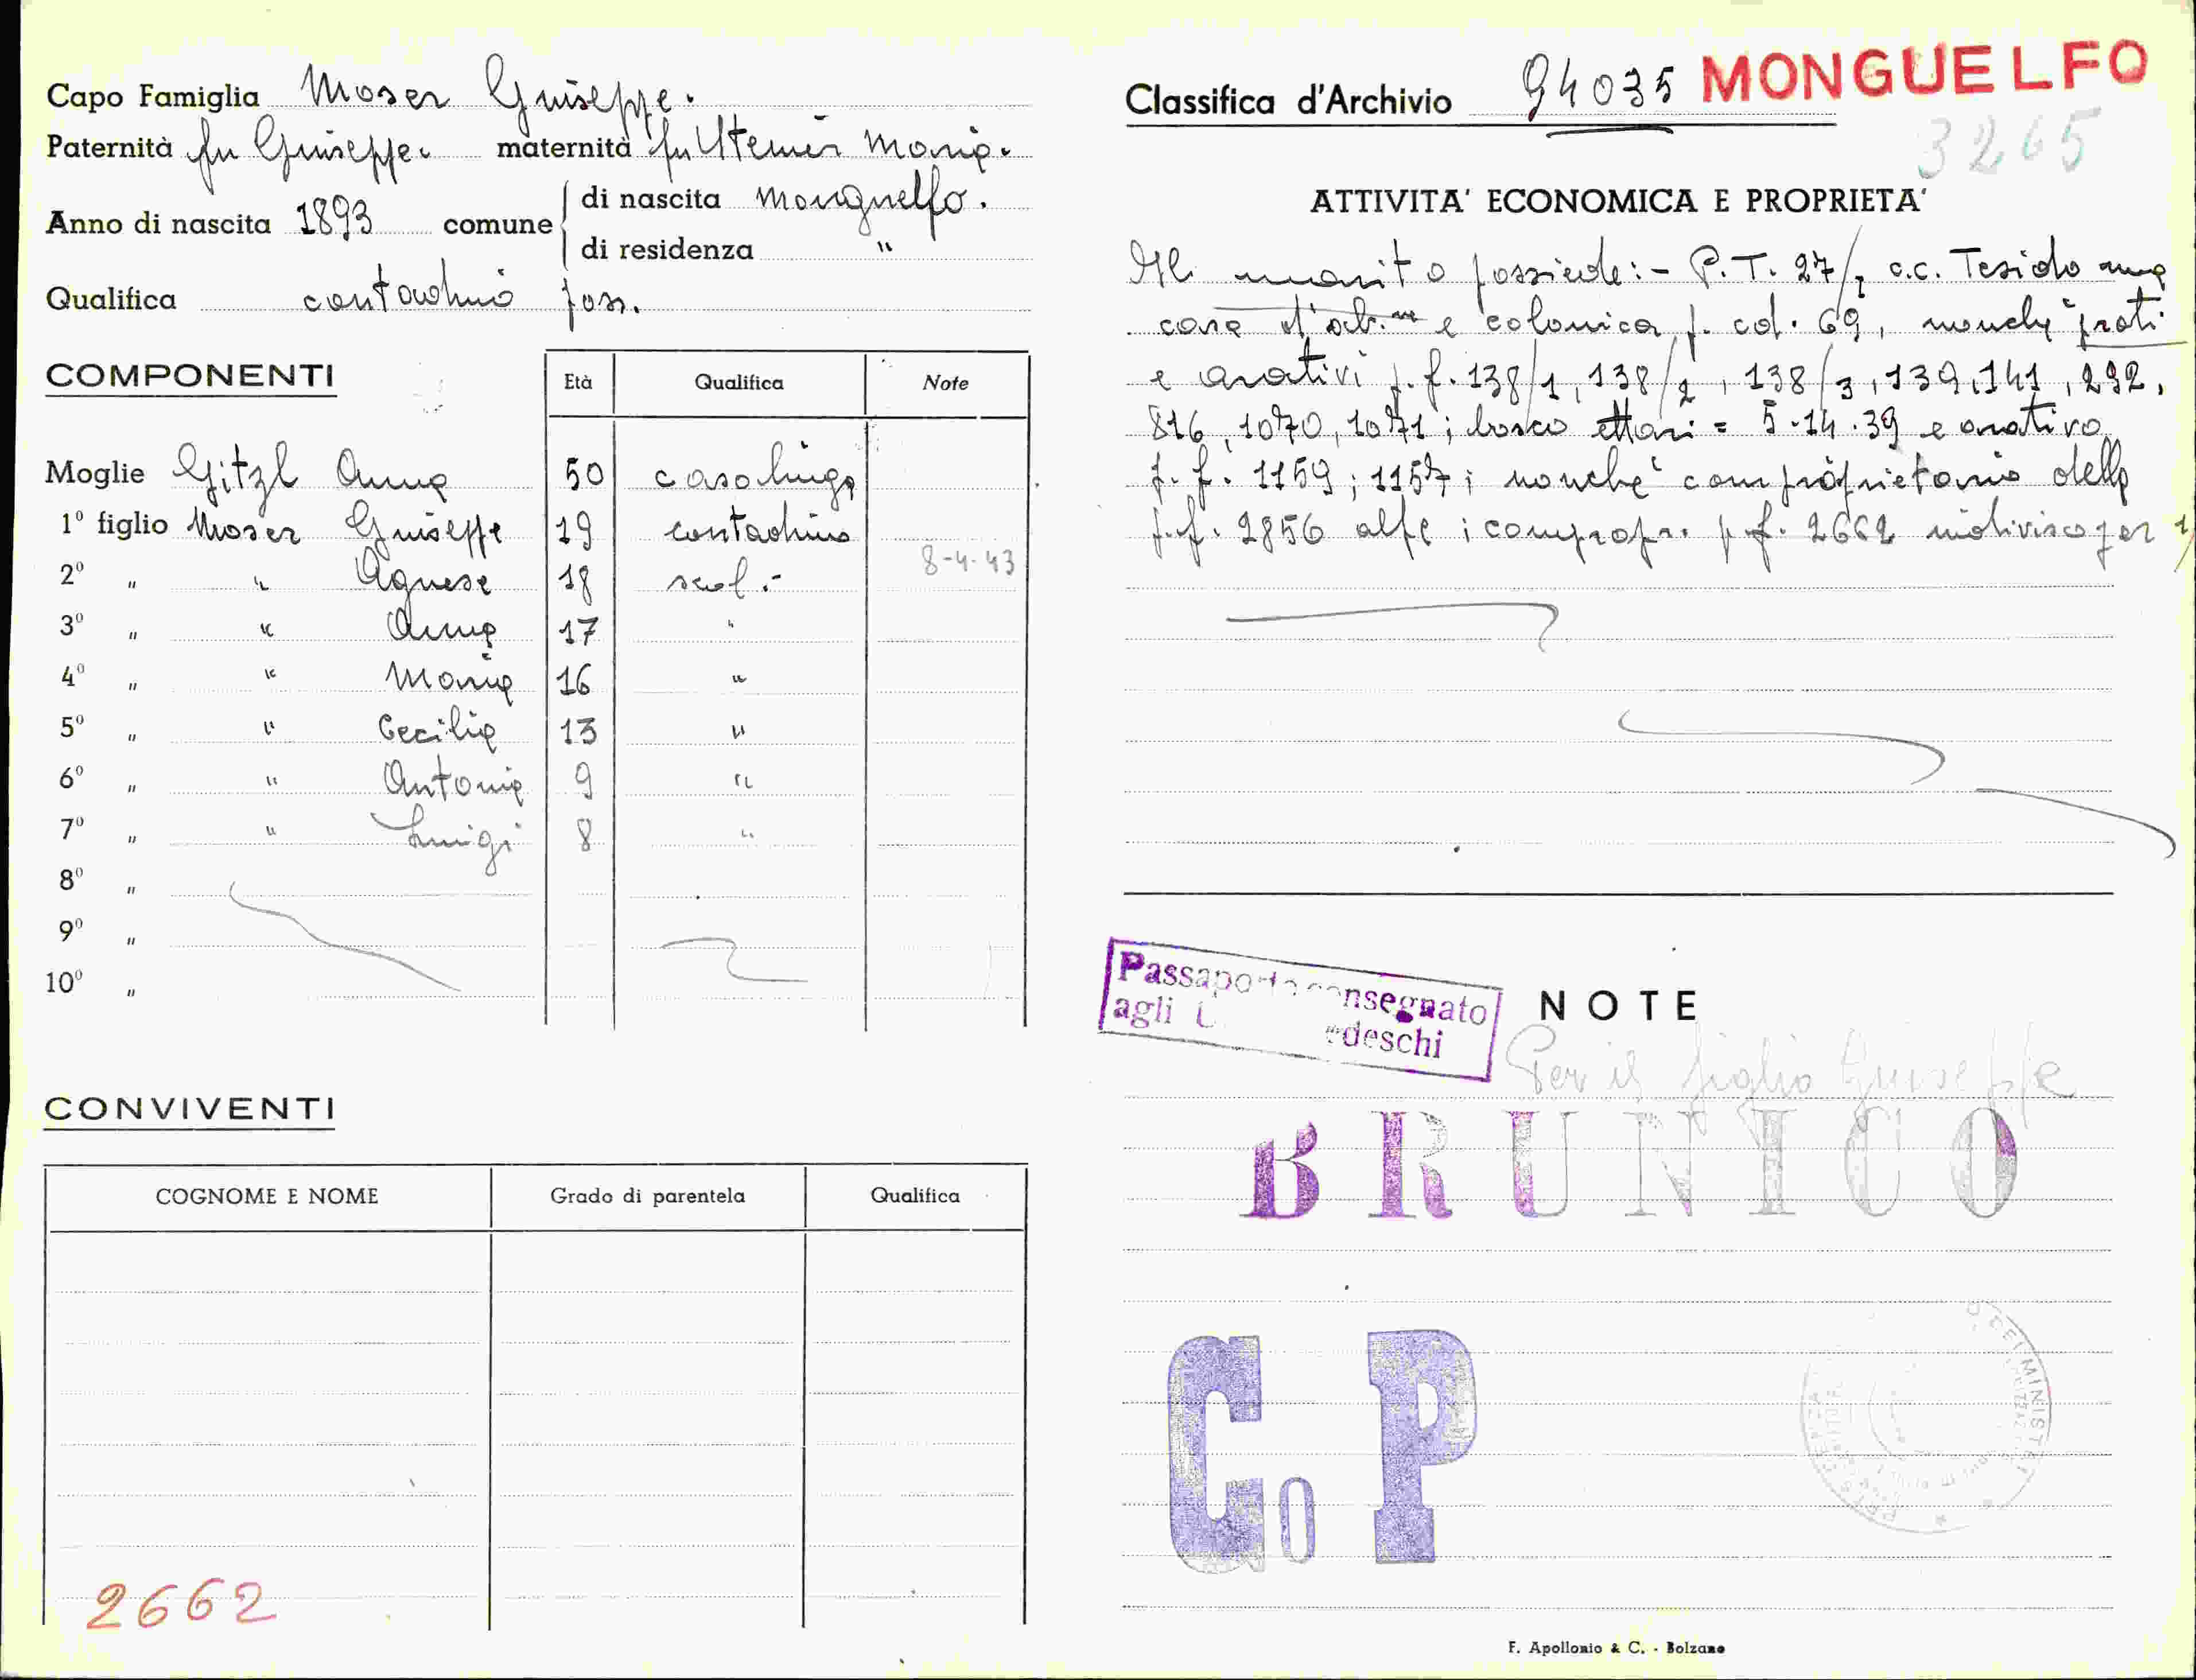 Capo Famiglia Moser Giuseppe.
Paternità fu Giuseppe. maternità fu Steiner Maria.
Anno di nascita 1893 comune di nascita Monguelfo.
di residenza "
Qualifica contadino poss.
COMPONENTI
Età Qualifica Note
Moglie Gitzl Anna 50 casalinga
1º figlio Moser Giuseppe 19 contadino
2º " " Agnese 18 scol.- 8-4-43
3º " " Anna 17 "
4º " " Maria 16 "
5º " " Cecilia 13 "
6º " " Antonia 9 "
7º " " Luigi 8 "
8º "
9º "
10º "
CONVIVENTI
COGNOME E NOME Grado di parentela Qualifica
2662
Classifica d'Archivio 94035 MONGUELFO
3265
ATTIVITA' ECONOMICA E PROPRIETA'
Il marito possiede:- P.T. 27/1 c.c. Tesido una
casa d'ab.ne e colonica p. ed. 69, nonchè prati
e arativi p.f. 138/1, 138/2, 138/3, 139, 141, 292,
816, 1070, 1071; bosco ettari = 5.14.39 e arativo
p.f. 1159; 1157; nonchè comproprietario della
p.f. 2856 alpe; compropr. p.f. 2662 indiviso per
Passaporto consegnato
agli tedeschi
NOTE
Per il figlio Giuseppe
BRUNICO
Co P
F. Apollonio & C. - Bolzano